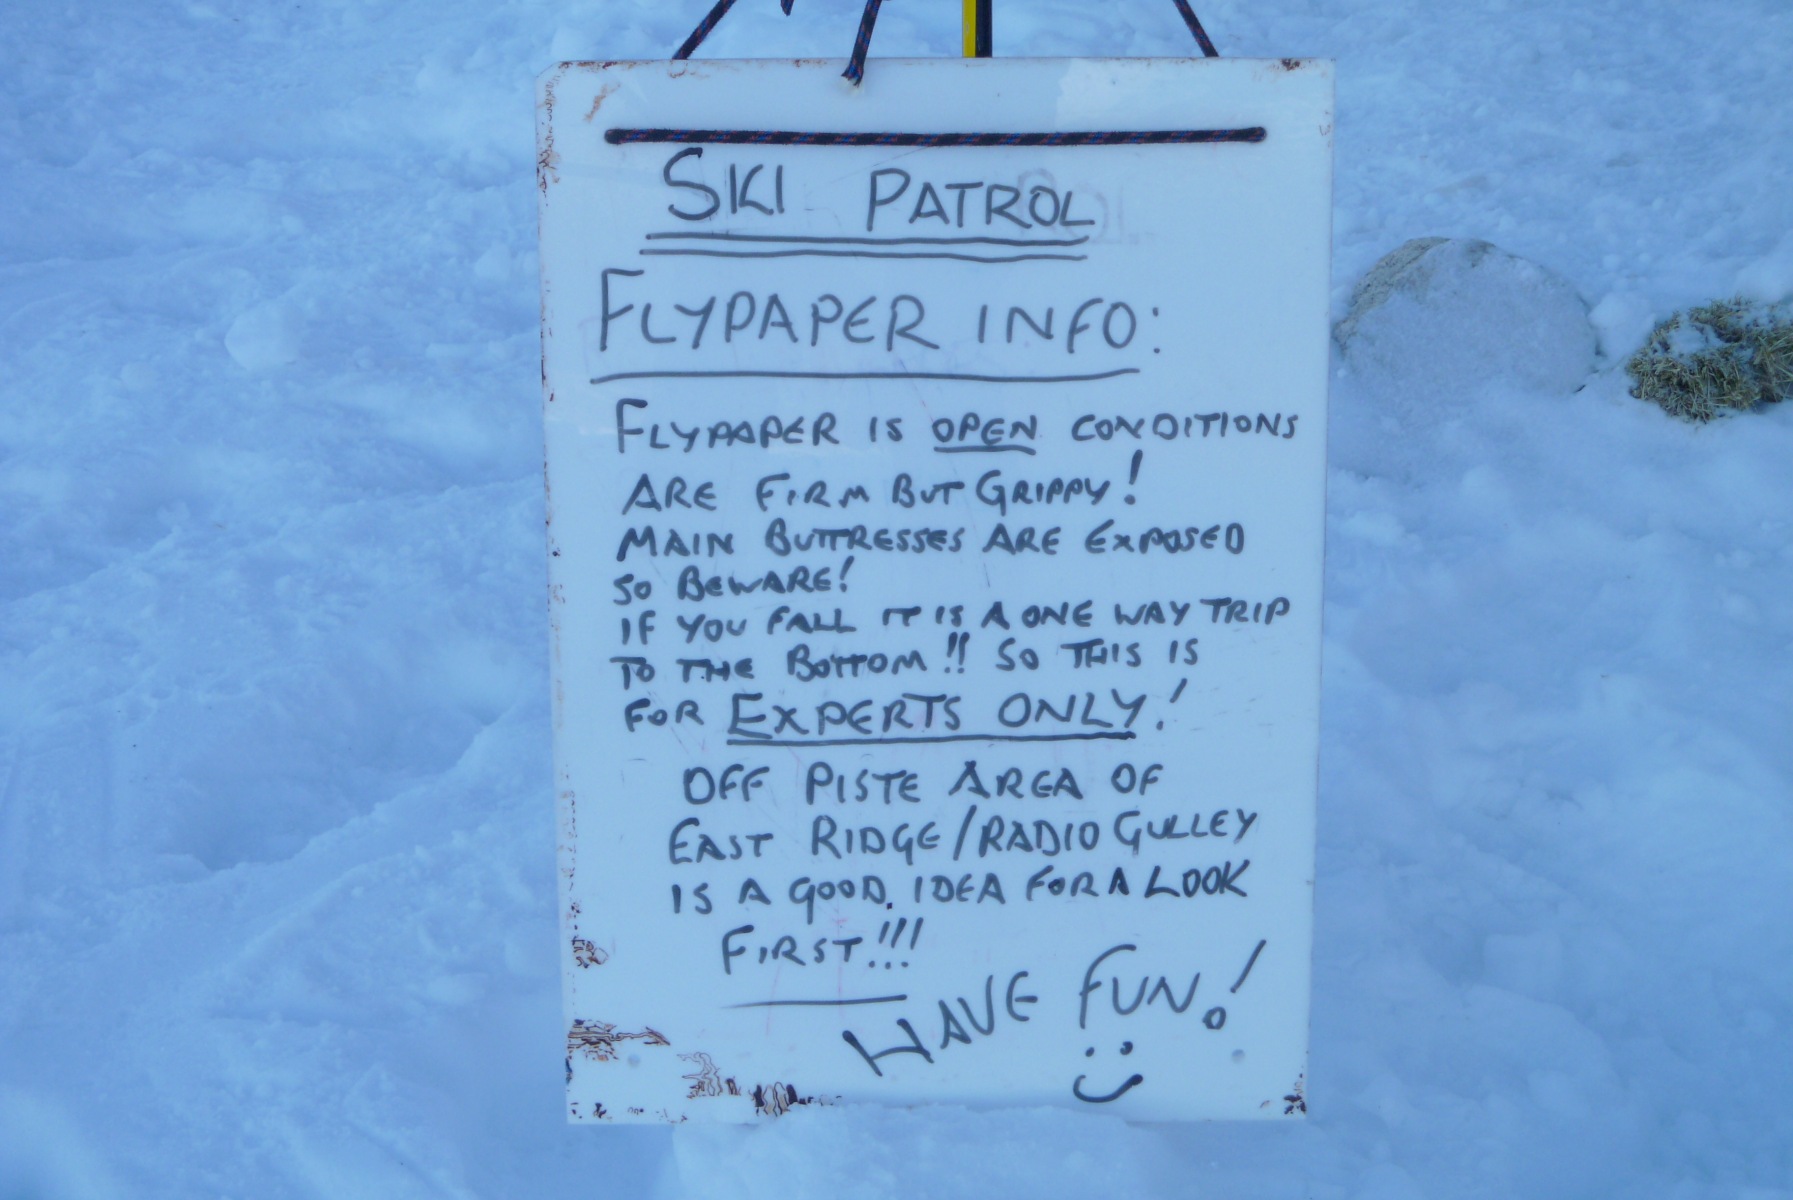 SKI PATROL
FLYPAPER INFO:
FLYPAPER IS OPEN CONDITIONS
ARE FIRM BUT GRIPPY!
MAIN BUTTRESSES ARE EXPOSED
SO BEWARE!
IF YOU FALL IT IS A ONE WAY TRIP
TO THE BOTTOM!! SO THIS IS
FOR EXPERTS ONLY!
OFF PISTE AREA OF
EAST RIDGE/RADIO GULLEY
IS A GOOD. IDEA FOR A LOOK
FIRST!!!
HAVE FUN!